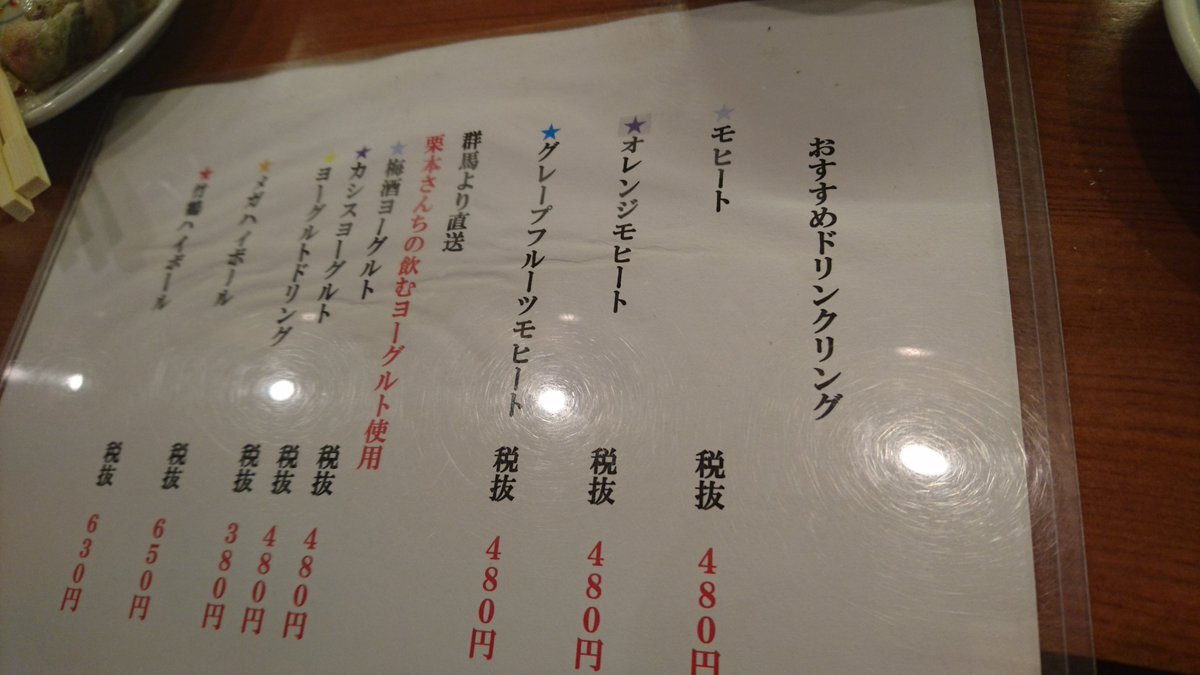 おすすめドリンクリング
★モヒート 税抜 480円
★オレンジモヒート 税抜 480円
★グレープフルーツモヒート 税抜 480円
群馬より直送
栗本さんちの飲むヨーグルト使用
★梅酒ヨーグルト 税抜 480円
★カシスヨーグルト 税抜 480円
★ヨーグルトドリング 税抜 380円
★メガハイボール 税抜 650円
★竹鶴ハイボール 税抜 630円